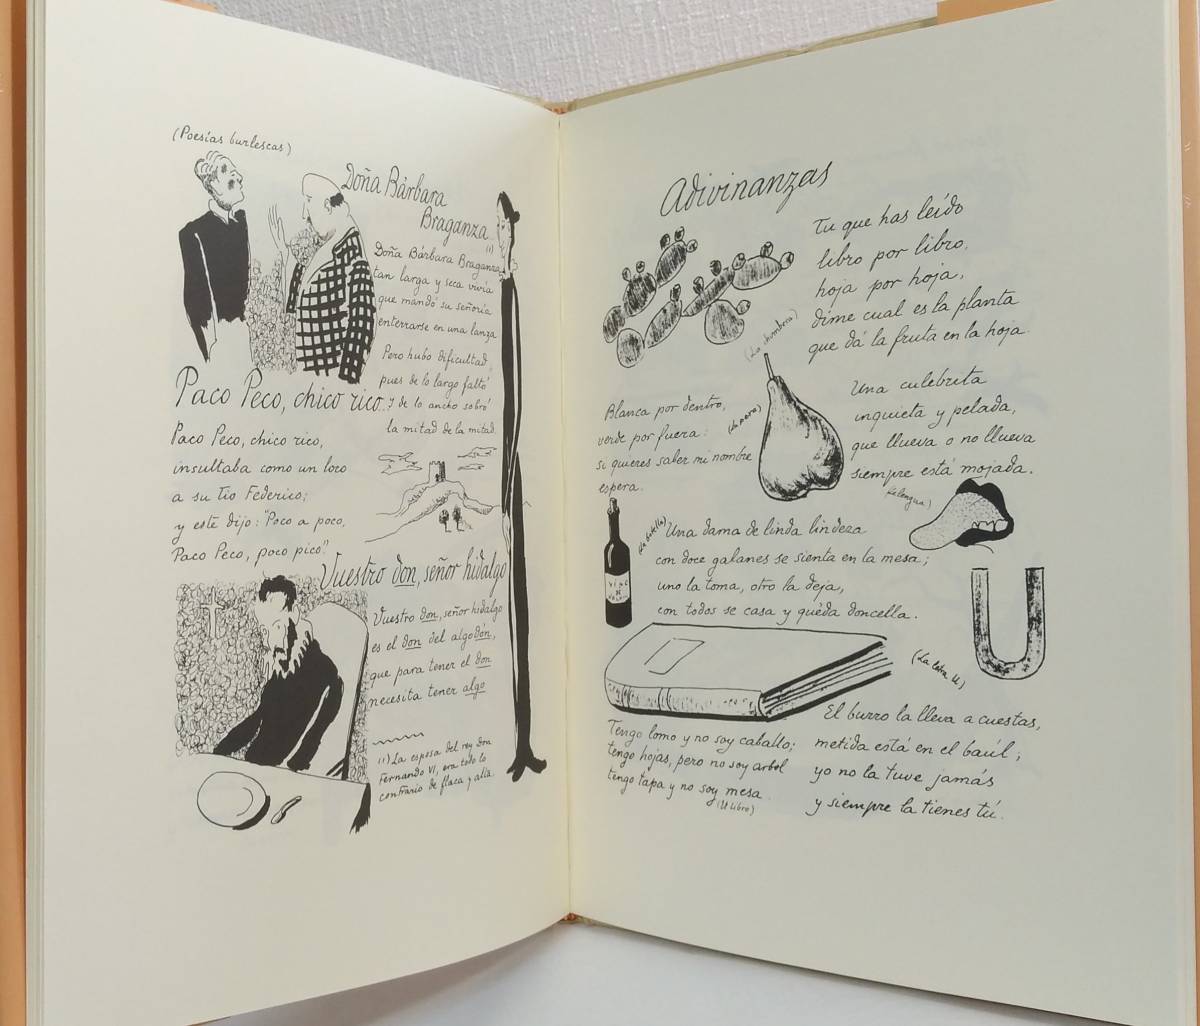 (Poesías burlescas)
Doña Bárbara
Braganza
(1)
Doña Bárbara Braganza
tan larga y seca vivía
que mandó su señoría
enterrarse en una lanza
Pero hubo dificultad,
pues de lo largo faltó
Y de lo ancho sobró
la mitad de la mitad.
Paco Peco, chico rico..
Paco Peco, chico rico,
insultaba como un loco
a su tío Federico;
y este dijo: "Poco a poco,
Paco Peco, poco pico".
Vuestro don, señor hidalgo
Vuestro don, señor hidalgo
es el don del algodón,
que para tener el don
necesita tener algo
(1) La esposa del rey don
Fernando VI, era todo lo
contrario de flaca y alta.
Adivinanzas
Tu que has leído
libro por libro,
hoja por hoja,
dime cual es la planta
que dá la fruta en la hoja.
(La chumbera)
Blanca por dentro,
verde por fuera:
si quieres saber mi nombre
espera.
(La pera)
Una culebrita
inquieta y pelada,
que llueva o no llueva
siempre está mojada.
(La lengua)
Una dama de linda lindeza
con doce galanes se sienta en la mesa;
uno la toma, otro la deja,
con todos se casa y quéda doncella.
(La botella)
VINO
DE
Tengo lomo y no soy caballo;
tengo hojas, pero no soy arbol
tengo tapa y no soy mesa.
(El libro)
(La letra U.)
El burro la lleva a cuestas,
metida está en el baúl;
yo no la tuve jamás
y siempre la tienes tú.